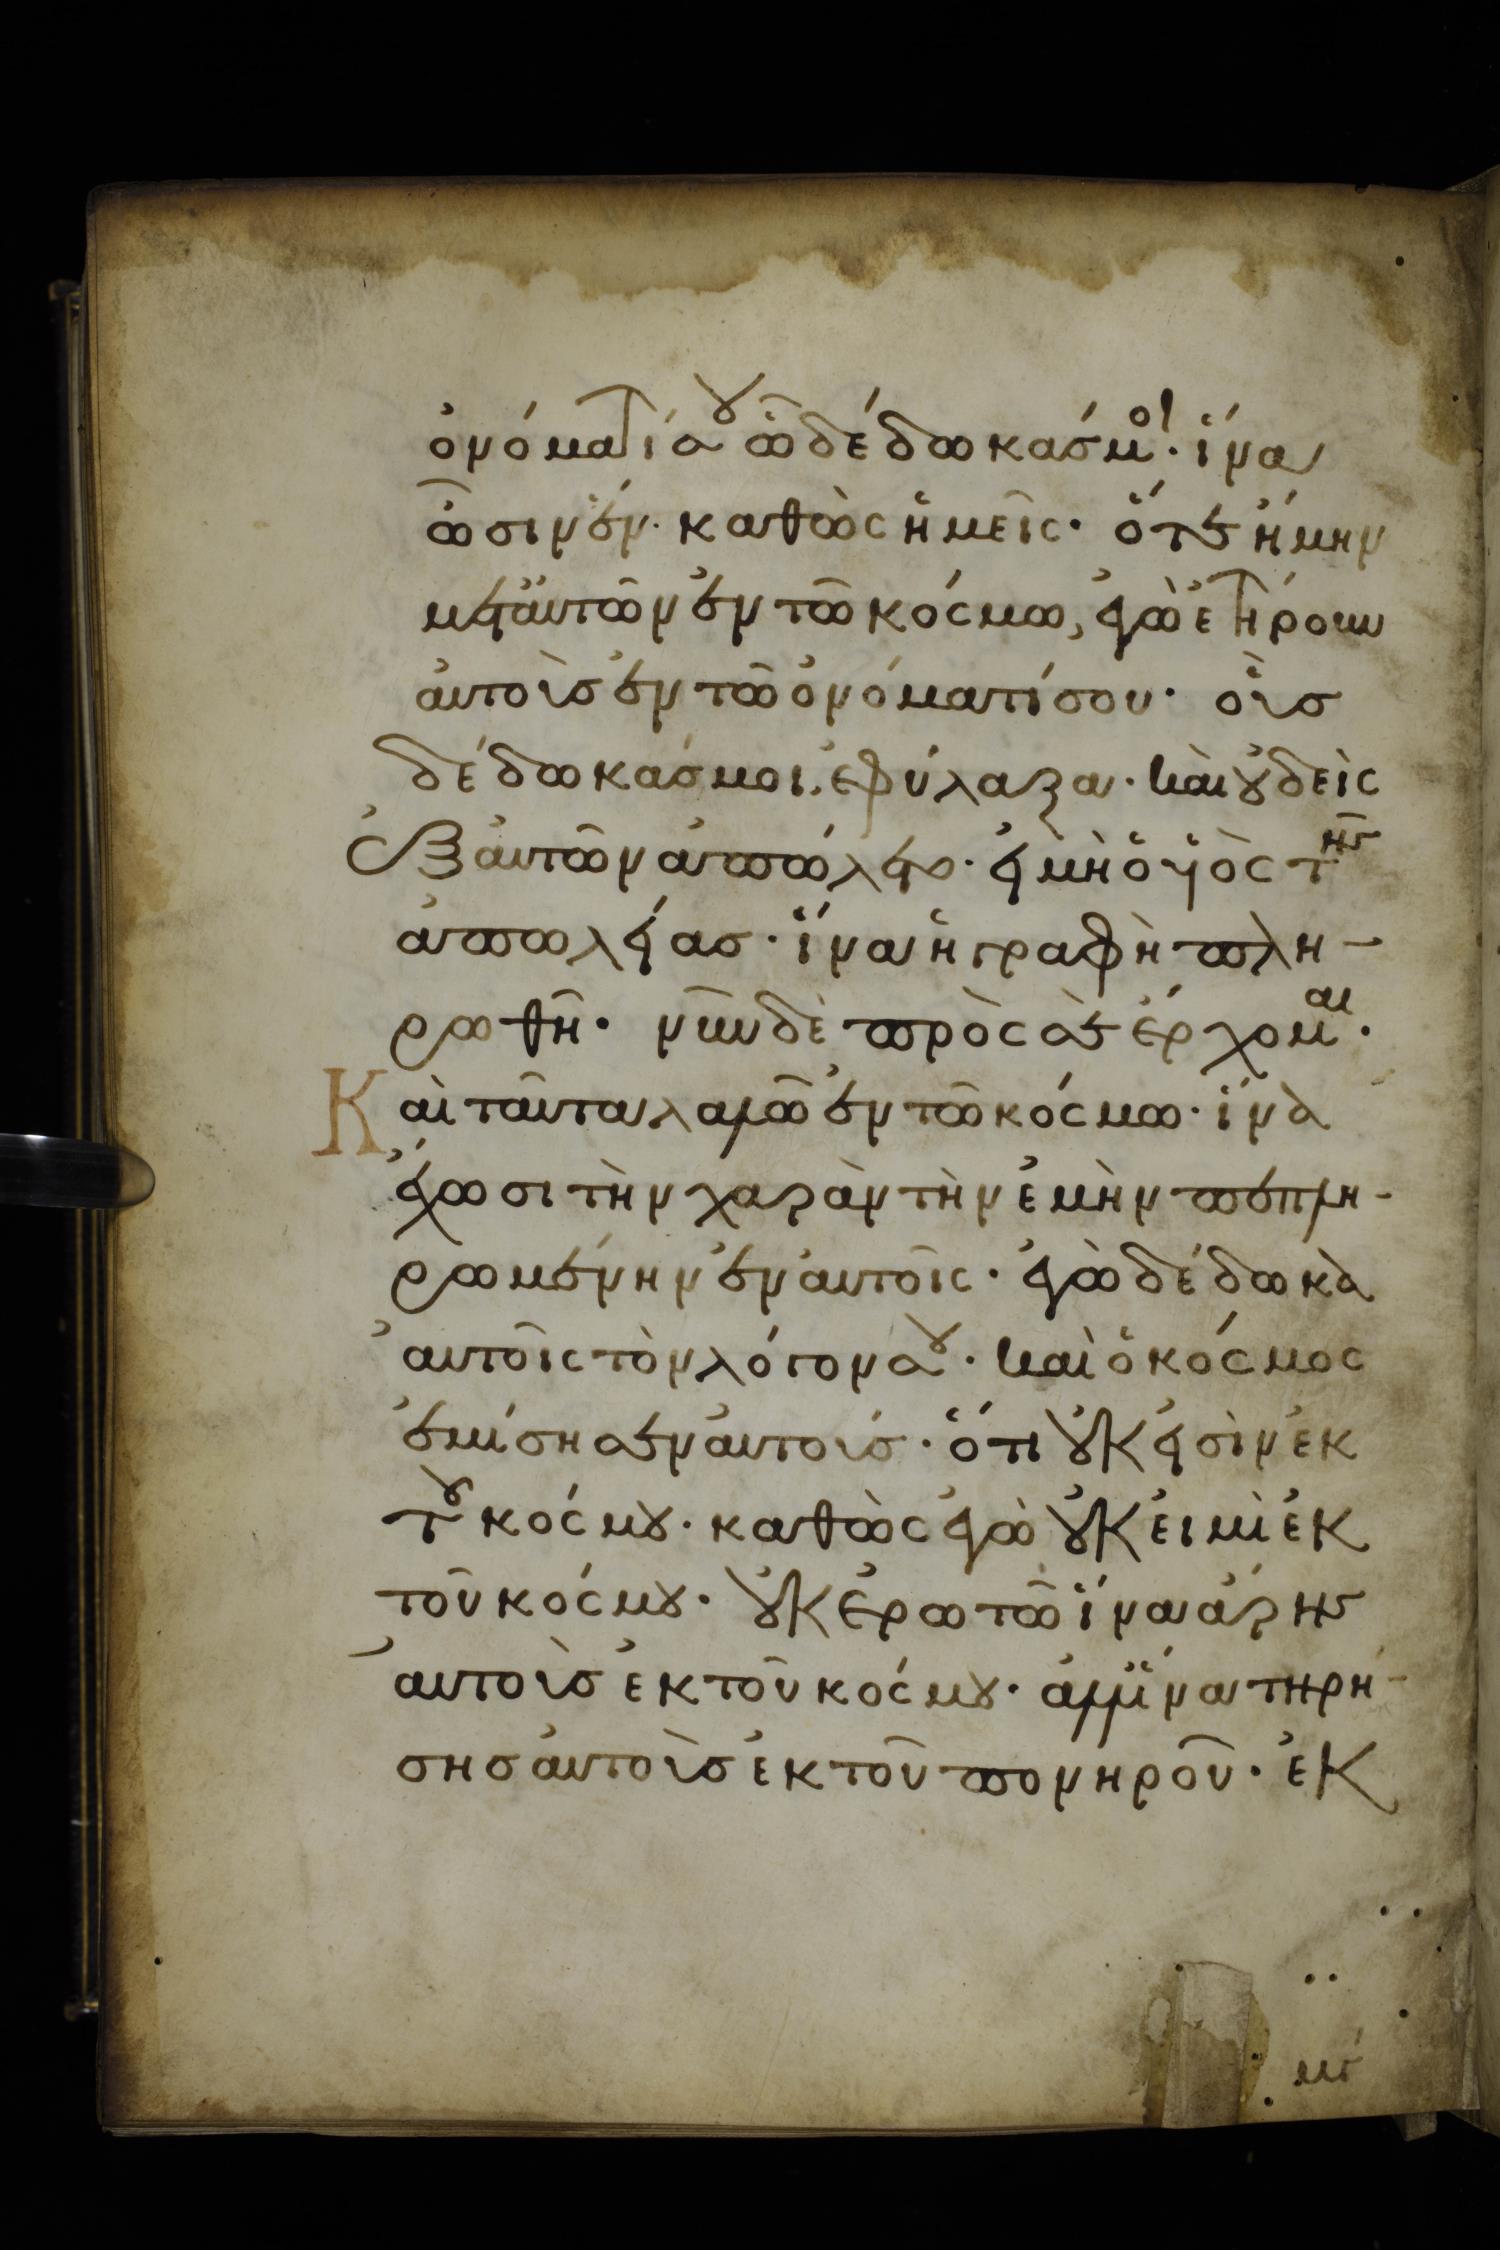 ὀνόματί σου ὧ δέδωκάς μοι· ἵνα
ὦσιν ἕν· καθὼς ἡμεῖς· ὅτε ἤμην
μετ' αὐτῶν ἐν τῶ κόσμω, ἐγὼ ἐτήρουν
αὐτοὺς ἐν τῶ ὀνόματί σου· οὓς
δέδωκάς μοι. ἐφύλαξα· καὶ οὐδεὶς
ἐξ αὐτῶν ἀπώλετο· εἰ μὴ ὁ υἱὸς τῆς
ἀπωλείας· ἵνα ἡ γραφὴ πλη-
ρωθῆ· νῦν δὲ πρὸς σὲ ἔρχομαι·
Καὶ ταῦτα λαλῶ ἐν τῶ κόσμω· ἵνα
ἔχωσι τὴν χαρὰν τὴν ἐμὴν πεπλη-
ρωμένην ἐν αὐτοῖς· ἐγὼ δέδωκα
αὐτοῖς τὸν λόγον σου· καὶ ὁ κόσμος
ἐμίσησεν αὐτούς· ὅτι οὐκ εἰσὶν ἐκ
τοῦ κόσμου· καθὼς ἐγὼ οὐκ εἰμὶ ἐκ
τοῦ κόσμου· οὐκ ἐρωτῶ ἵνα ἄρης
αὐτοὺς ἐκ τοῦ κόσμου· ἀλλ' ἵνα τηρή-
σης αὐτοὺς ἐκ τοῦ πονηροῦ· ἐκ